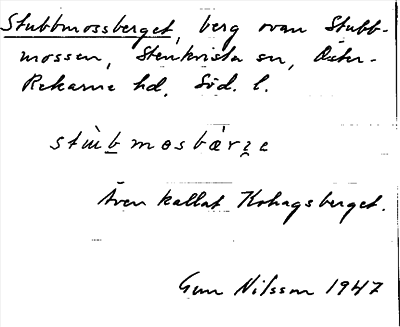 Stubbmossberget, berg ovan Stubb-
mossen, Stenkvista sn, Öster-
Rekarne hd, Söd. l.
Även kallat Kohagsberget.
Gun Nilsson 1947